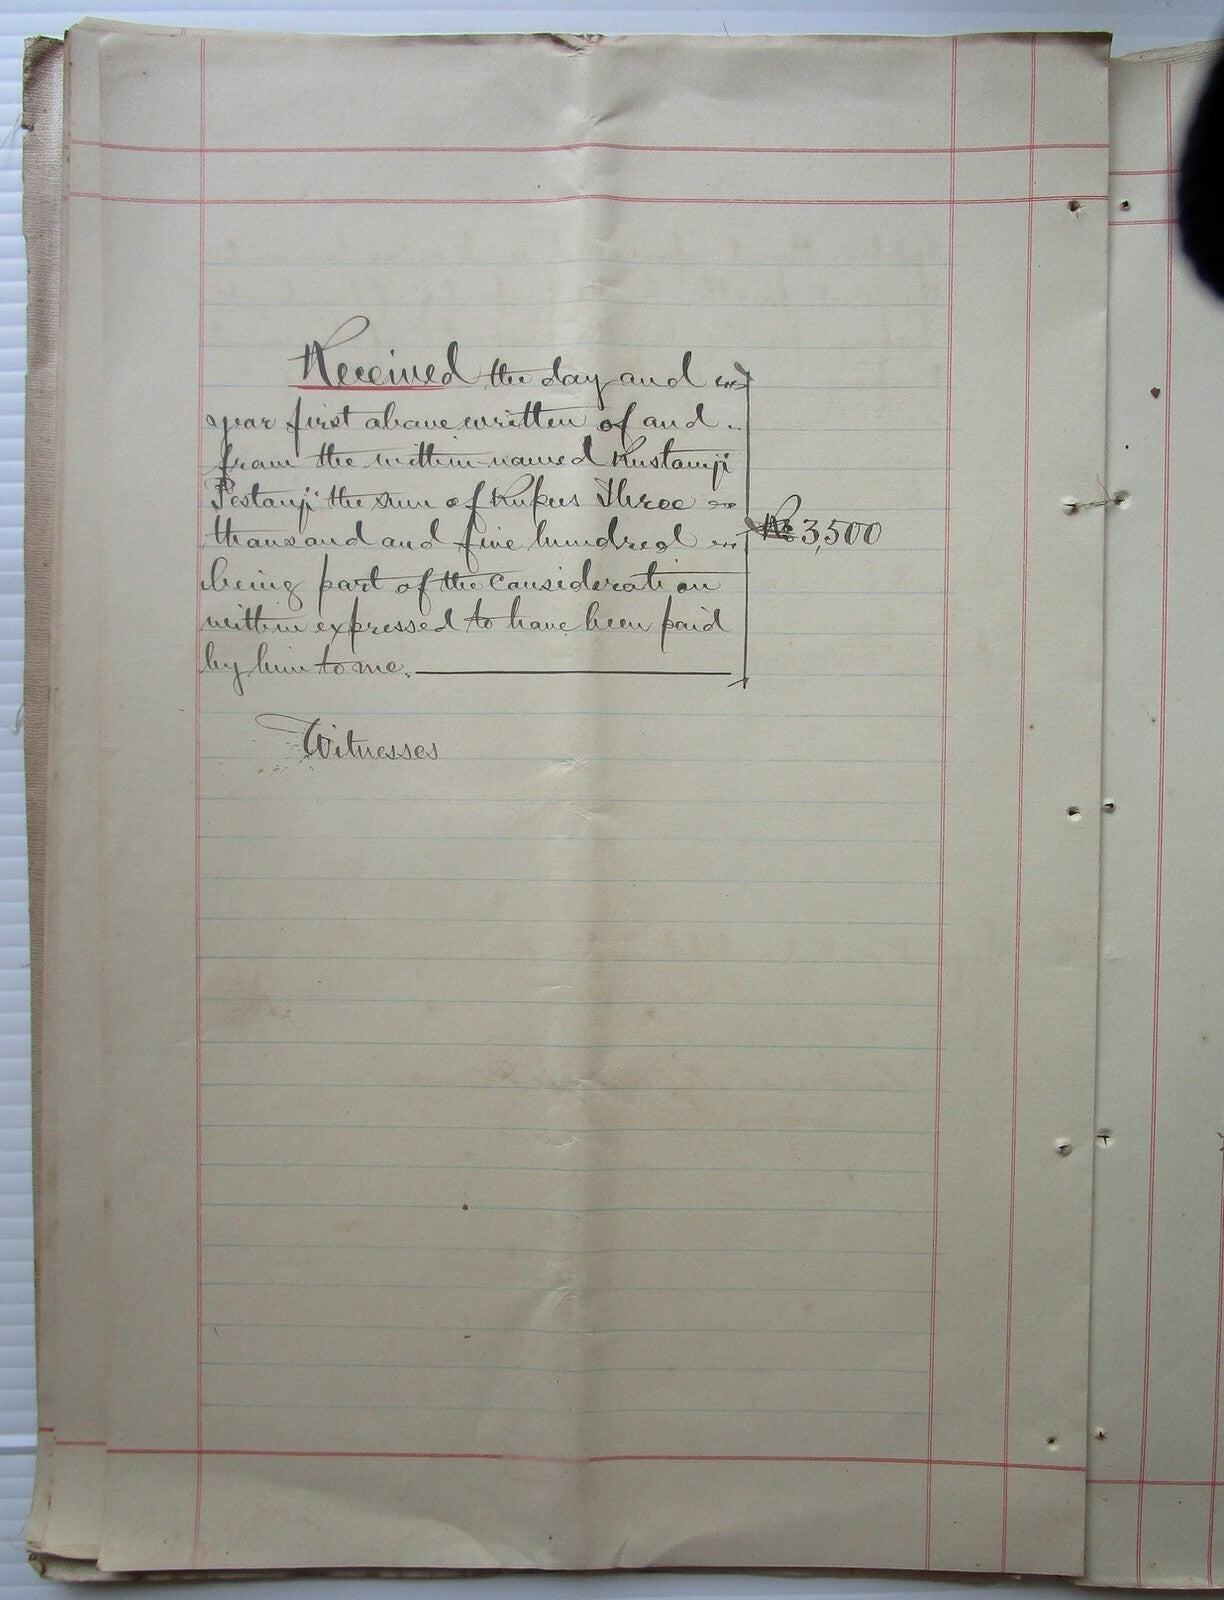 Received the day and
year first above written of and
from the within-named Rustamji
Pestanji the sum of Rupees Three
thousand and five hundred
Rs 3,500
being part of the consideration
within expressed to have been paid
by him to me.
Witnesses